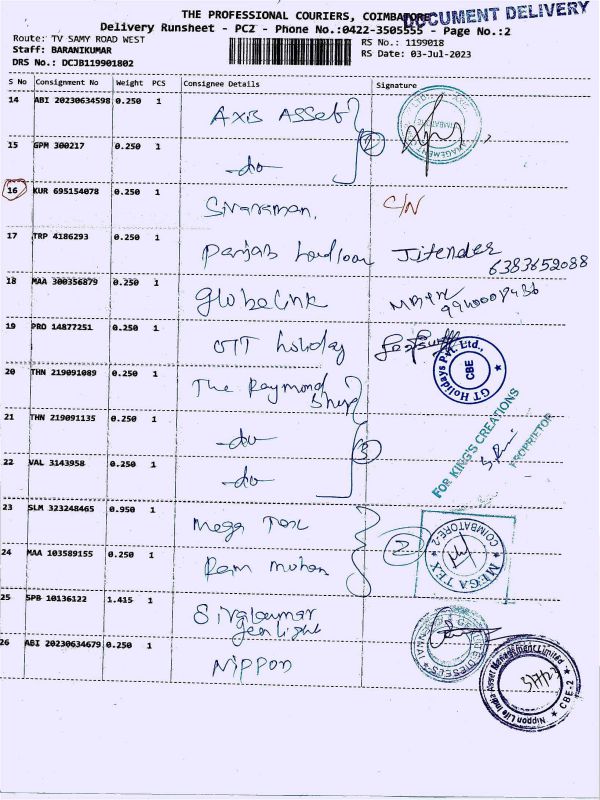 THE PROFESSIONAL COURIERS, COIMBATORE
DOCUMENT DELIVERY
Delivery Runsheet - PCZ - Phone No.:0422-3505555 - Page No.:2
Route: TV SAMY ROAD WEST
RS No.: 1199018
Staff: BARANIKUMAR
RS Date: 03-Jul-2023
DRS No.: DCJB119901802
S No Consignment No Weight PCS Consignee Details Signature
14 ABI 20230634598 0.250 1 Axis Asset
15 GPM 300217 0.250 1 -do-
1
16 KUR 695154078 0.250 1 Sivaraman. C/N
17 TRP 4186293 0.250 1 Panjab Jitender
6383652088
18 MAA 300356879 0.250 1 Globelink
19 PRO 14877251 0.250 1 GTT holiday
GT Holidays Pvt. Ltd.,
CBE
20 THN 219091089 0.250 1 The Raymond
Shop
21 THN 219091135 0.250 1 -do-
22 VAL 3143958 0.250 1 -do-
3
FOR KING'S CREATIONS
PROPRIETOR
23 SLM 323248465 0.950 1 Mega Tex
24 MAA 103589155 0.250 1 Ram mohan
2
MEGA TEX
COIMBATORE-2
25 SPB 10136122 1.415 1 Sivakumar
26 ABI 20230634679 0.250 1 Nippon
Nippon Life India Asset Management Limited
CBE-2